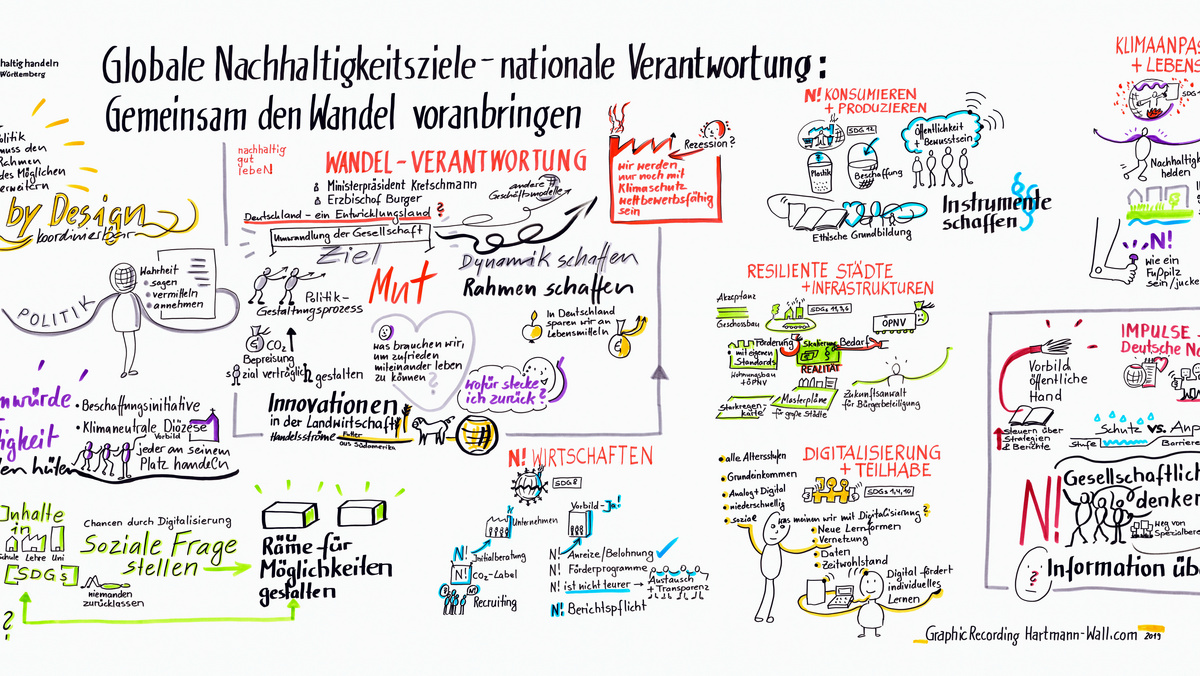 haltig handeln
Württemberg
Globale Nachhaltigkeitsziele – nationale Verantwortung :
Gemeinsam den Wandel voranbringen
olitik
muss den
Rahmen
des Möglichen
erweitern
by Design
koordinierbar
POLITIK
Wahrheit
• sagen
• vermitteln
• annehmen
nwürde
tigkeit
en hüten
• Beschaffungsinitiative
• Klimaneutrale Diözese
Vorbild
jeder an seinem
Platz handeln
Inhalte
in
Schule Lehre Uni
[SDGs]
Chancen durch Digitalisierung
Soziale Frage
stellen
niemanden
zurücklassen
?
Räme für
Möglichkeiten
gestalten
nachhaltig
gut
lebeN
WANDEL – VERANTWORTUNG
Ministerpräsident Kretschmann
Erzbischof Burger
Deutschland – ein Entwicklungsland ?
andere
Geschäftsmodelle
Umwandlung der Gesellschaft
Ziel
Politik-
Gestaltungsprozess
Mut
Dynamik schaffen
Rahmen schaffen
CO₂
Bepreisung
sozial verträglich gestalten
was brauchen wir,
um zufrieden
miteinander leben
zu können ?
In Deutschland
sparen wir an
Lebensmitteln
Wofür stecke
ich zurück ?
Innovationen
in der Landwirtschaft
Handelsströme
Futter
aus Südamerika
Rezession ?
Wir werden
nur noch mit
Klimaschutz
wettbewerbsfähig
sein
N! WIRTSCHAFTEN
SDG 8
Unternehmen
N! Initialberatung
N! CO₂-Label
Recruiting
Vorbild – Ja!
N! Anreize/Belohnung
N! Förderprogramme
N! ist nicht teurer
Austausch
+ Transparenz
N! Berichtspflicht
N! KONSUMIEREN
+ PRODUZIEREN
SDG 12
Plastik
Beschaffung
Öffentlichkeit
+ Bewusstsein
Ethische Grundbildung
Instrumente
schaffen
§
RESILIENTE STÄDTE
+ INFRASTRUKTUREN
Akzeptanz
Geschossbau
SDGs 11,3,6
ÖPNV
Förderung
mit eigenen
Standards
Wohnungsbau
+ ÖPNV
Skalierung
Bedarf
REALITÄT
Starkregen-
karte
Masterpläne
für große Städte
Zukunftsanwalt
für Bürgerbeteiligung
DIGITALISIERUNG
+ TEILHABE
SDGs 1,4,10
• alle Altersstufen
• Grundeinkommen
• Analog + Digital
• niederschwellig
• sozial
Was meinen wir mit Digitalisierung ?
• Neue Lernformen
• Vernetzung
• Daten
• Zeitwohlstand
Digital fördert
individuelles
Lernen
KLIMAANPAS
+ LEBENS
SDG
Nachhaltigk
helden
N!
wie ein
Fußpilz
sein/jucke
IMPULSE –
Deutsche Na
Vorbild
öffentliche
Hand
Steuern über
Strategien
& Berichte
Schutz vs. Anp
Stufe
Barriere
N!
Gesellschaftlich
denken
Weg von
Spezialbere
?
Information üb
GraphicRecording Hartmann-Wall.com 2019